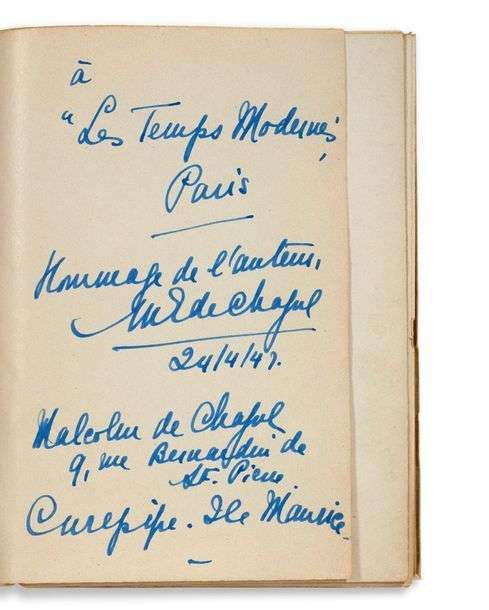 à
"Les Temps Modernes"
Paris
Hommage de l'auteur,
M de Chazal
24/4/47.
Malcolm de Chazal
9, rue Bernardin de
St. Pierre
Curepipe. Ile Maurice